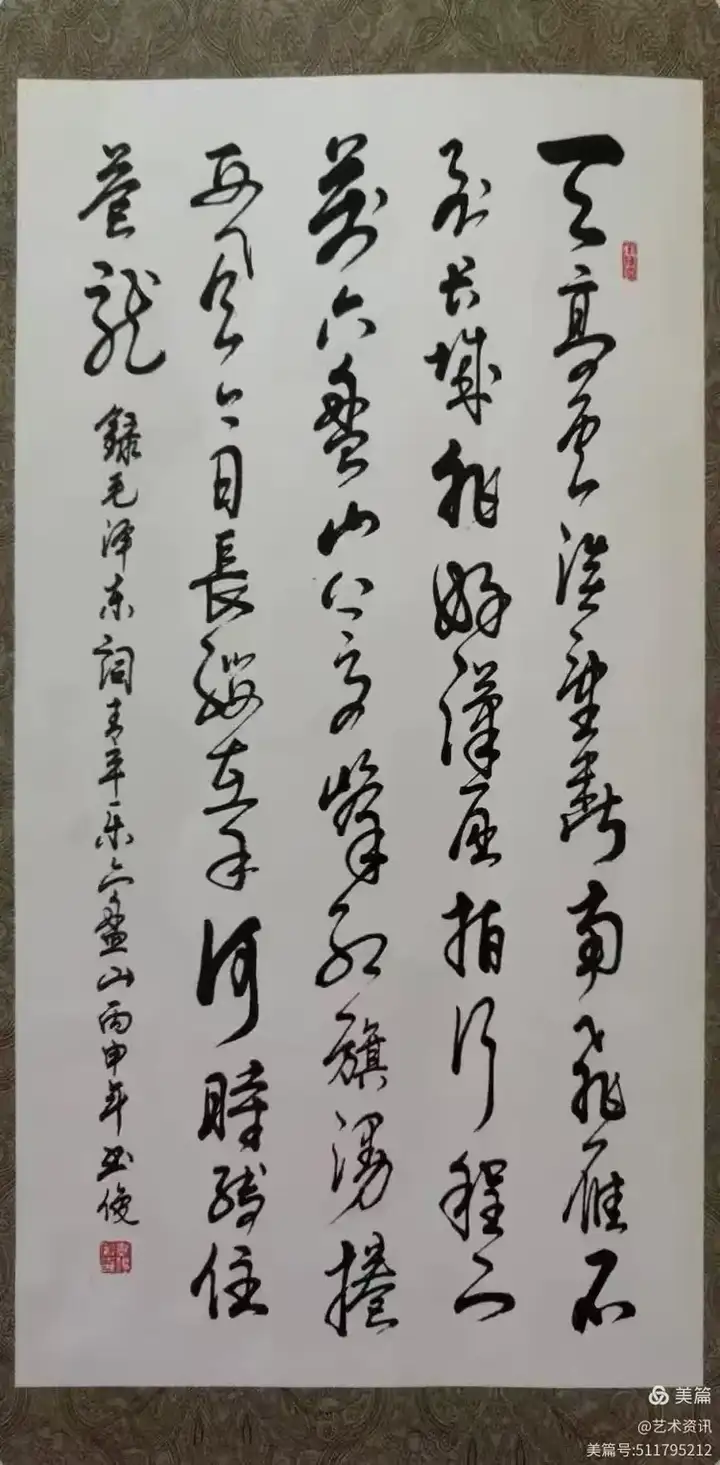 天高雲淡望斷南飛雁不
到长城非好漢屈指行程二
萬六盘山上高峰红旗漫捲
西風今日長纓在手何時縛住
蒼龍
録毛泽东詞青平乐六盘山丙申年俊
美篇
@艺术资讯
美篇号:511795212